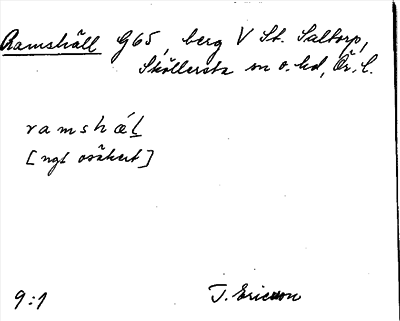 Ramshäll G65, berg V St. Saltorp,
Sköllersta sn o. hd, Ör. l.
ramshǽl
[ngt osäkert]
9:1
T. Ericsson